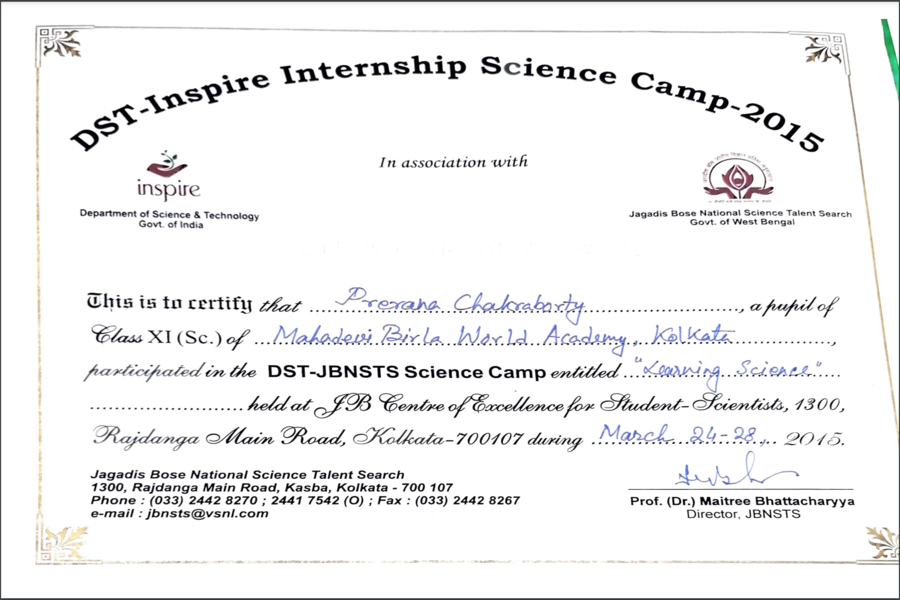 DST-Inspire Internship Science Camp-2015
In association with
inspire
Department of Science & Technology
Govt. of India
Jagadis Bose National Science Talent Search
Govt. of West Bengal
This is to certify that ... Prerana Chakraborty ..., a pupil of
Class XI (Sc.) of ... Mahadevi Birla World Academy, Kolkata ...,
participated in the DST-JBNSTS Science Camp entitled ... "Learning Science" ...
... held at JB Centre of Excellence for Student-Scientists, 1300,
Rajdanga Main Road, Kolkata-700107 during ... March 24-28, ... 2015.
Jagadis Bose National Science Talent Search
1300, Rajdanga Main Road, Kasba, Kolkata - 700 107
Phone : (033) 2442 8270 ; 2441 7542 (O) ; Fax : (033) 2442 8267
e-mail : jbnsts@vsnl.com
Prof. (Dr.) Maitree Bhattacharyya
Director, JBNSTS